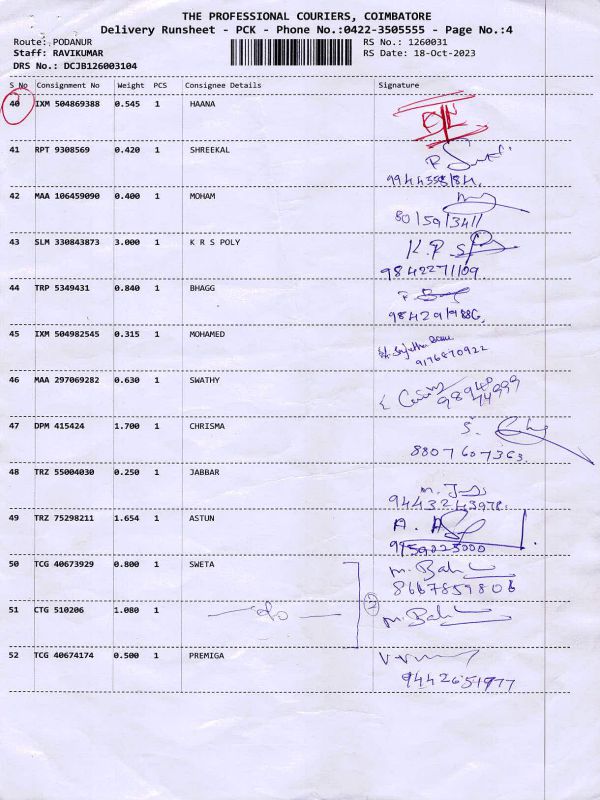 THE PROFESSIONAL COURIERS, COIMBATORE
Delivery Runsheet - PCK - Phone No.:0422-3505555 - Page No.:4
Route: PODANUR RS No.: 1260031
Staff: RAVIKUMAR RS Date: 18-Oct-2023
DRS No.: DCJB126003104
S No Consignment No Weight PCS Consignee Details Signature
40 IXM 504869388 0.545 1 HAANA
41 RPT 9308569 0.420 1 SHREEKAL
42 MAA 106459090 0.400 1 MOHAM
80/59/3411
43 SLM 330843873 3.000 1 K R S POLY K.P.S
9842271109
44 TRP 5349431 0.840 1 BHAGG
45 IXM 504982545 0.315 1 MOHAMED
9176870922
46 MAA 297069282 0.630 1 SWATHY
98940
74999
47 DPM 415424 1.700 1 CHRISMA
8807607363.
48 TRZ 55004030 0.250 1 JABBAR
9443243978.
49 TRZ 75298211 1.654 1 ASTUN
9159025000
50 TCG 40673929 0.800 1 SWETA M. Bal
8667859806
51 CTG 510206 1.080 1 do 2 M. Bal
52 TCG 40674174 0.500 1 PREMIGA
9442651977